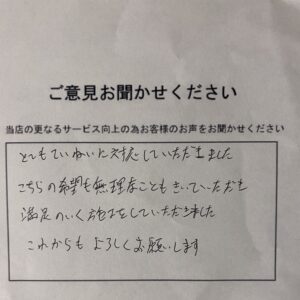 ご意見お聞かせください
当店の更なるサービス向上の為お客様のお声をお聞かせください
とてもていねいに対応していただきました
こちらの希望も無理なこともきいていただき
満足のいく施工をしていただきました
これからもよろしくお願いします